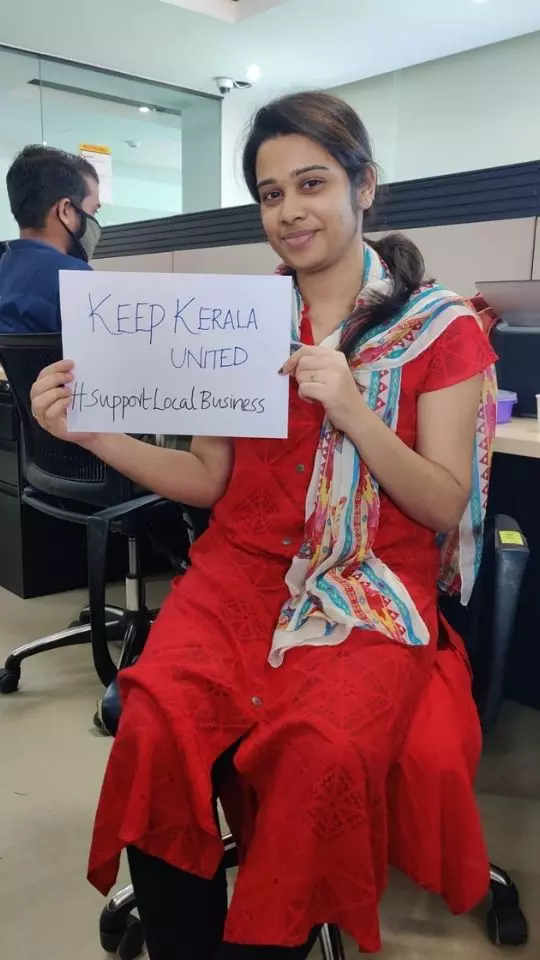 KEEP KERALA
UNITED
#SupportLocalBusiness